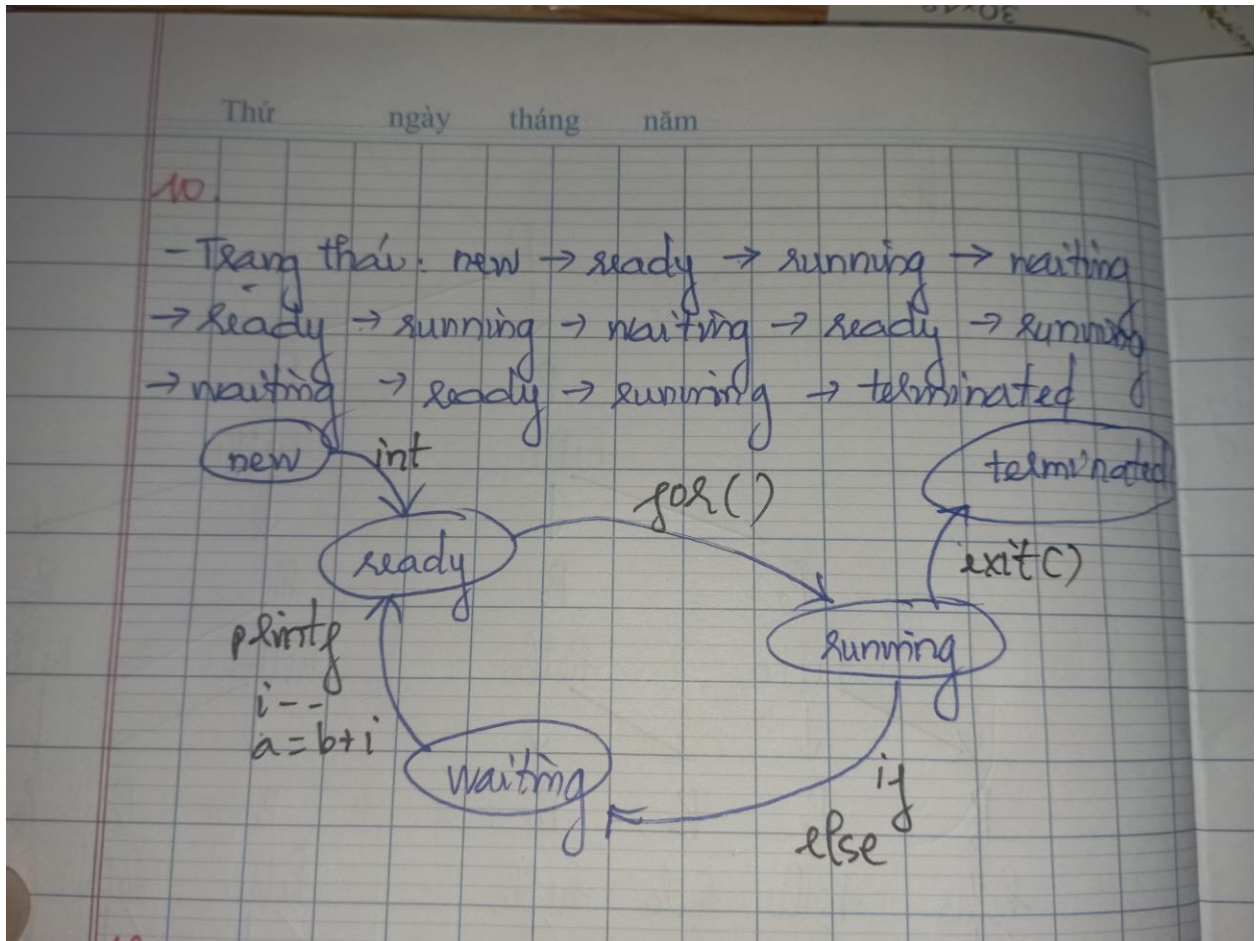 30x40
Thứ ngày tháng năm
10.
- Trạng thái: new → ready → running → waiting
→ ready → running → waiting → ready → running
→ waiting → ready → running → terminated
new int terminated
for()
ready exit()
printf running
i--
a = b+i
waiting if
else